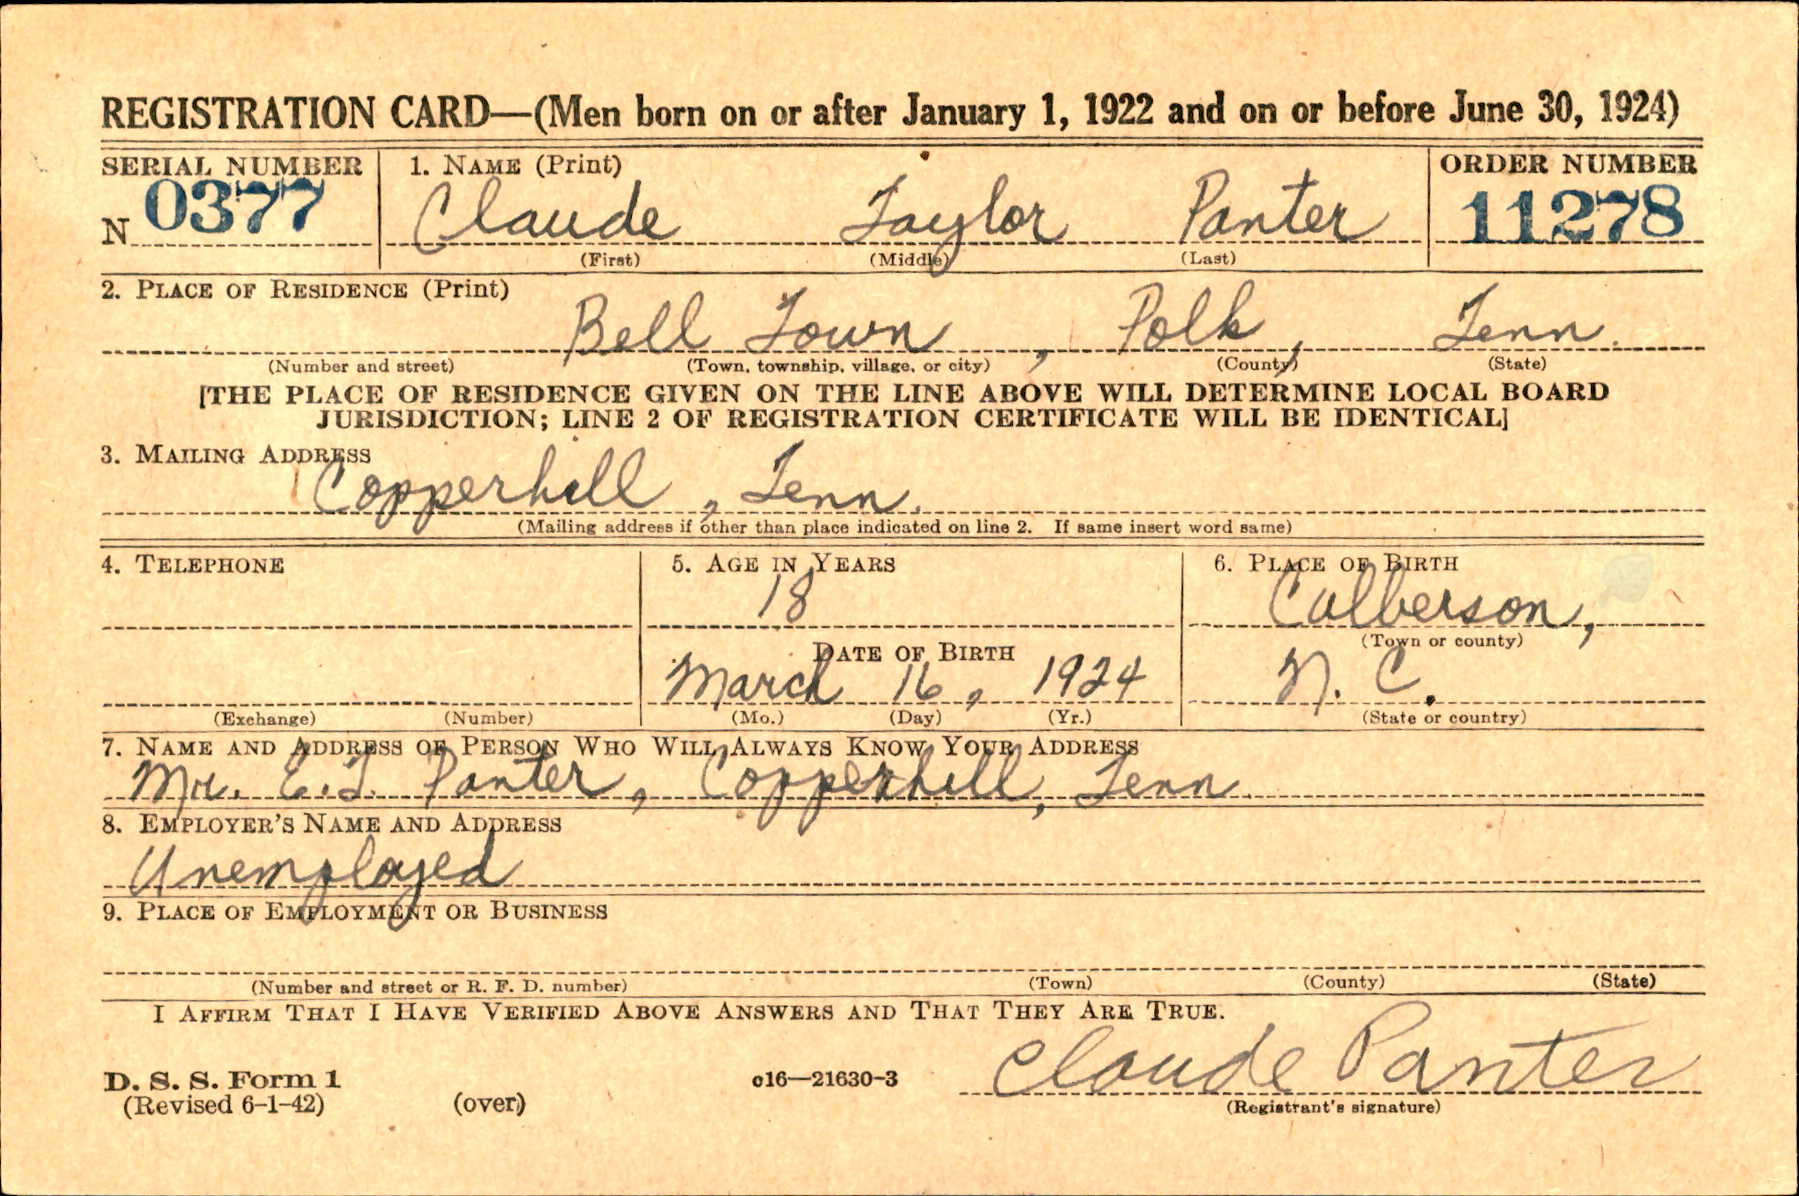 REGISTRATION CARD—(Men born on or after January 1, 1922 and on or before June 30, 1924)
SERIAL NUMBER 1. NAME (Print) ORDER NUMBER
N 0377 Claude Taylor Panter 11278
(First) (Middle) (Last)
2. PLACE OF RESIDENCE (Print)
Bell Town, Polk, Tenn.
(Number and street) (Town, township, village, or city) (County) (State)
[THE PLACE OF RESIDENCE GIVEN ON THE LINE ABOVE WILL DETERMINE LOCAL BOARD
JURISDICTION; LINE 2 OF REGISTRATION CERTIFICATE WILL BE IDENTICAL]
3. MAILING ADDRESS
Copperhill, Tenn.
(Mailing address if other than place indicated on line 2. If same insert word same)
4. TELEPHONE 5. AGE IN YEARS 6. PLACE OF BIRTH
18 Culberson,
DATE OF BIRTH (Town or county)
March 16, 1924 N. C.
(Exchange) (Number) (Mo.) (Day) (Yr.) (State or country)
7. NAME AND ADDRESS OF PERSON WHO WILL ALWAYS KNOW YOUR ADDRESS
Mr. E.T. Panter, Copperhill, Tenn.
8. EMPLOYER'S NAME AND ADDRESS
Unemployed
9. PLACE OF EMPLOYMENT OR BUSINESS
(Number and street or R. F. D. number) (Town) (County) (State)
I AFFIRM THAT I HAVE VERIFIED ABOVE ANSWERS AND THAT THEY ARE TRUE.
D. S. S. Form 1 c16—21630-3 Claude Panter
(Revised 6-1-42) (over) (Registrant's signature)